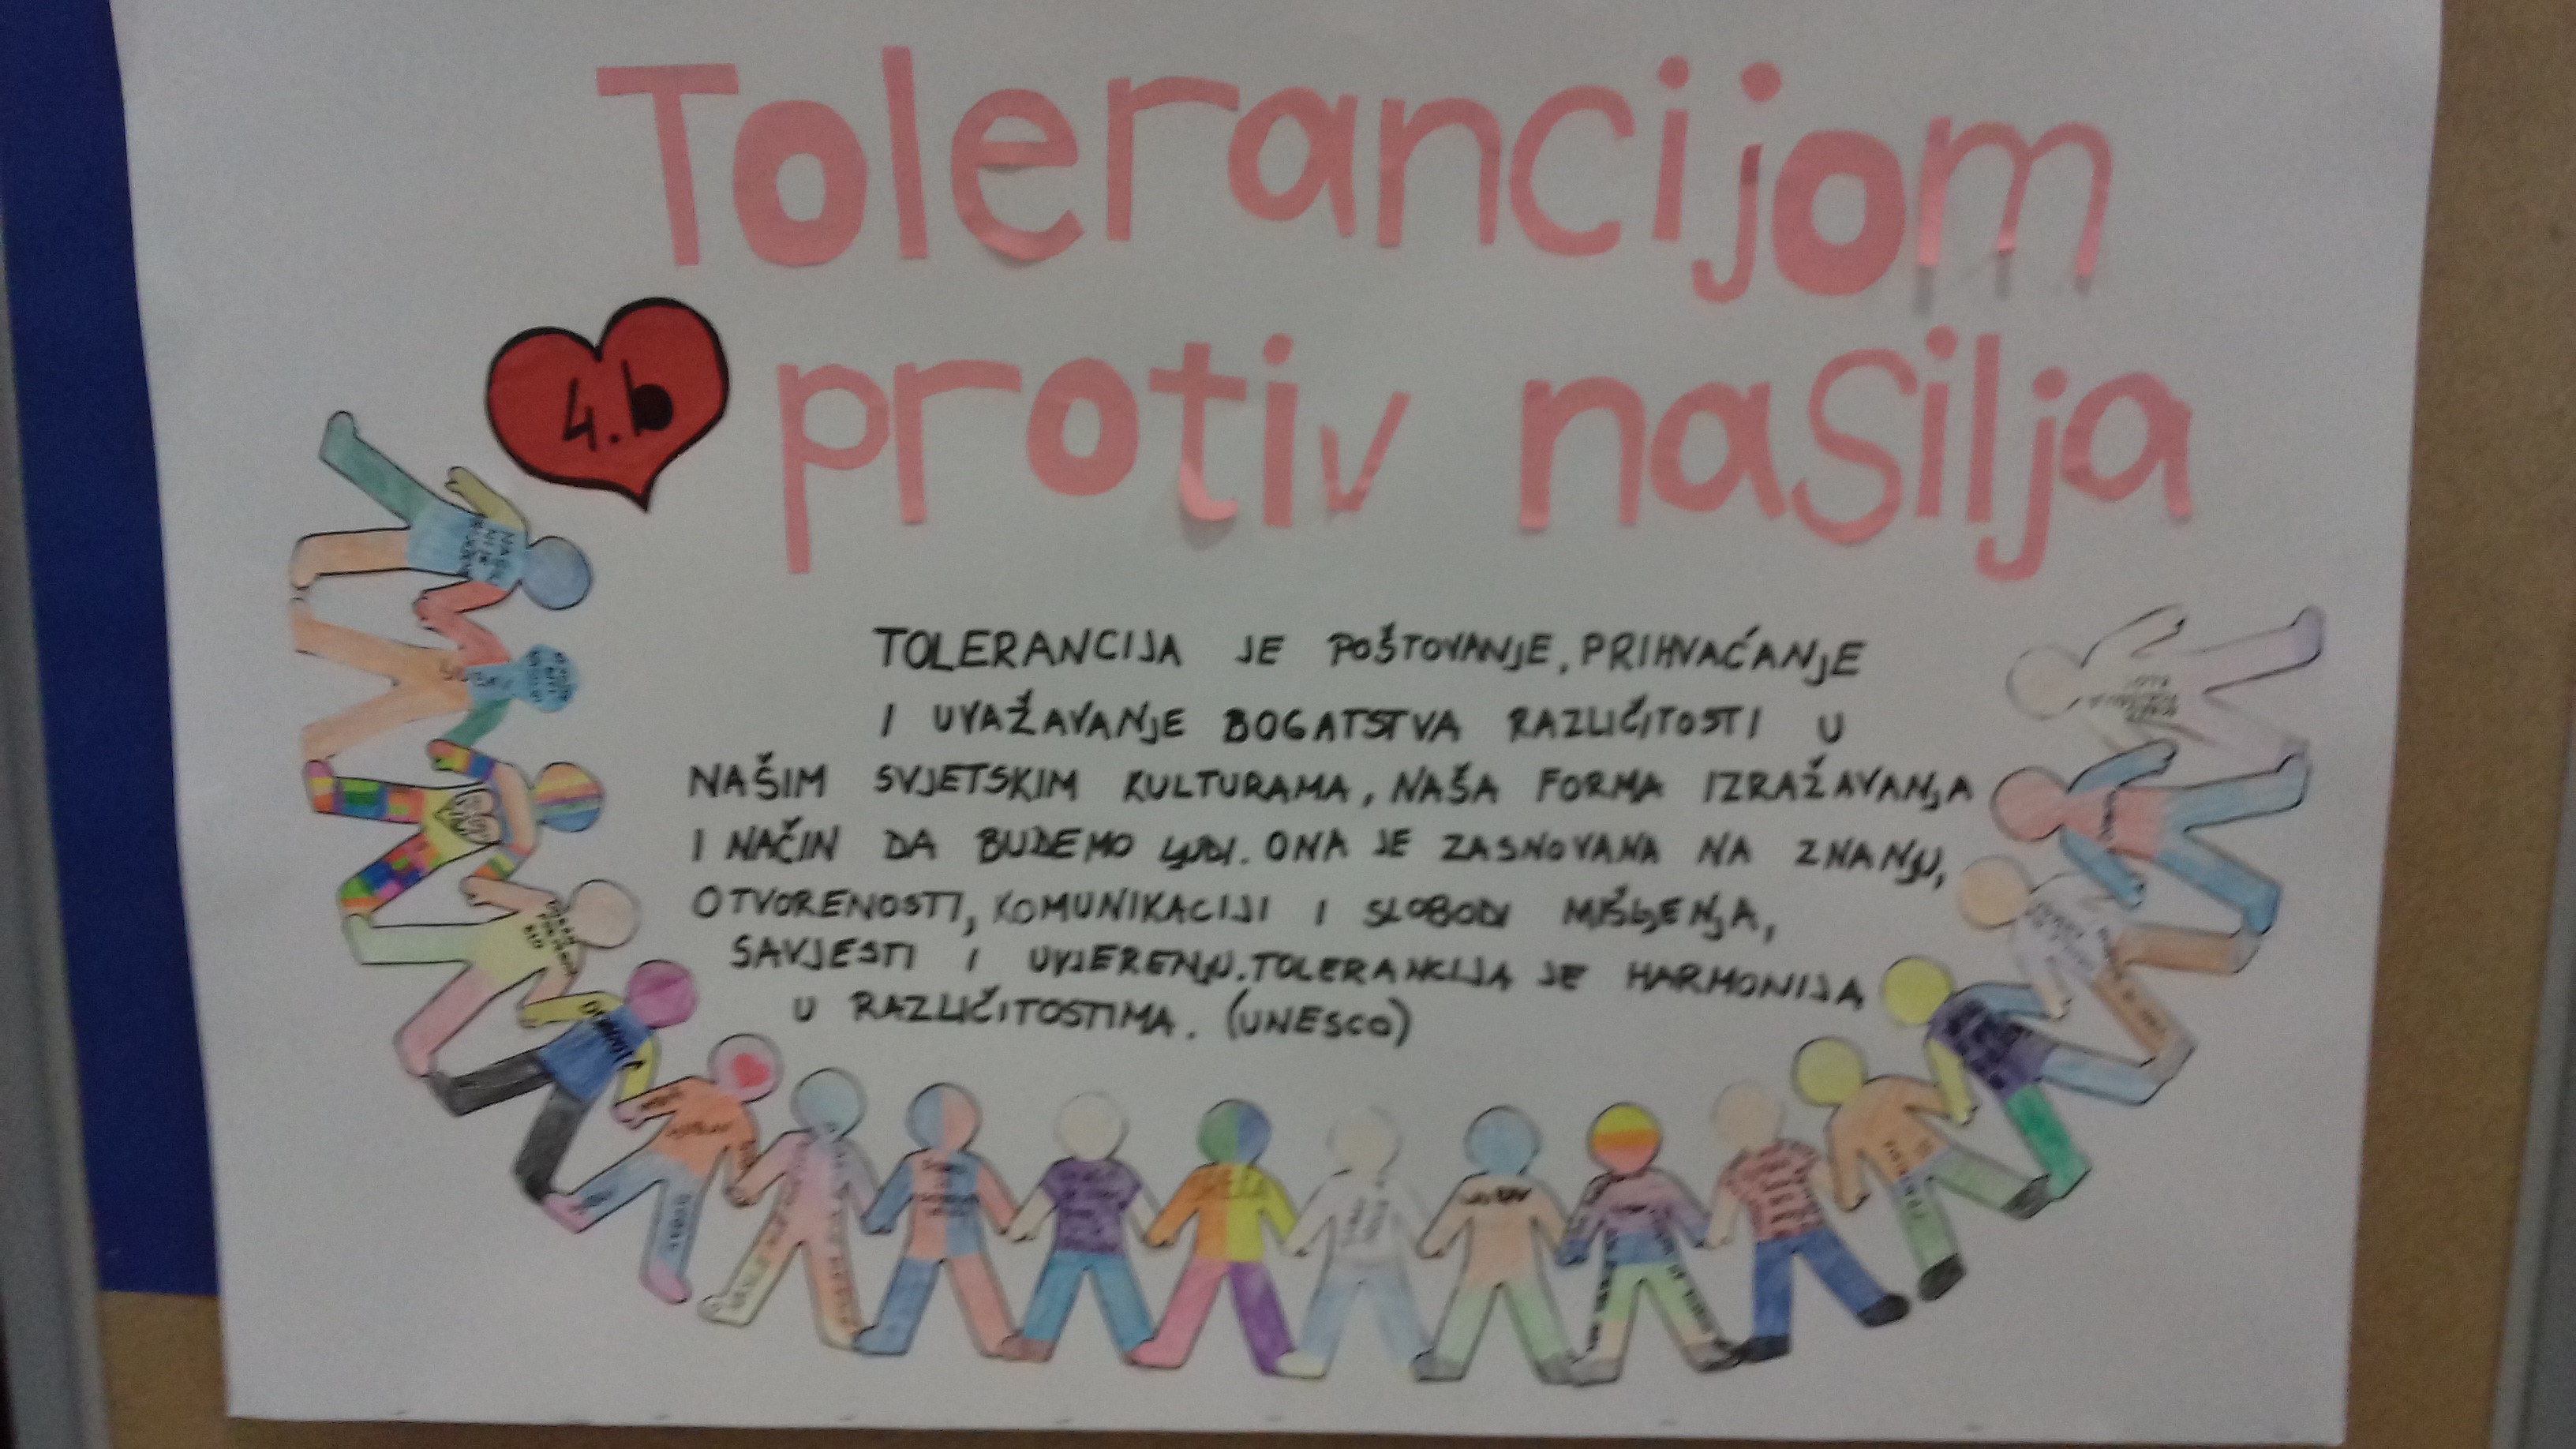 Tolerancijom
4.b
protiv nasilja
TOLERANCIJA JE POŠTOVANJE, PRIHVAĆANJE
I UVAŽAVANJE BOGATSTVA RAZLIČITOSTI U
NAŠIM SVJETSKIM KULTURAMA, NAŠA FORMA IZRAŽAVANJA
I NAČIN DA BUDEMO LJUDI. ONA JE ZASNOVANA NA ZNANJU,
OTVORENOSTI, KOMUNIKACIJI I SLOBODI MIŠLJENJA,
SAVJESTI I UVJERENJU. TOLERANCIJA JE HARMONIJA
U RAZLIČITOSTIMA. (UNESCO)